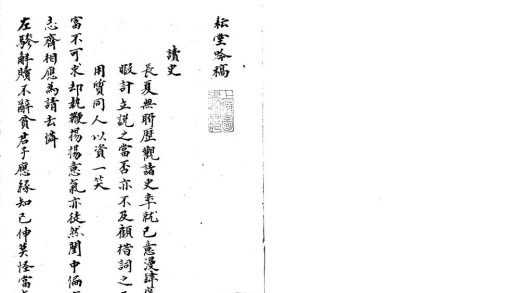 耘堂吟稿
讀史
長夏無聊歷觀諸史率就己意漫肆
暇計立說之當否亦不及顧措詞之
用質同人以資一笑
富不可求却執鞭揚揚意氣亦徒然閨中偏
志齊相應為請去憐
左驂解贖不辭貧君子應緣知己伸莫怪當